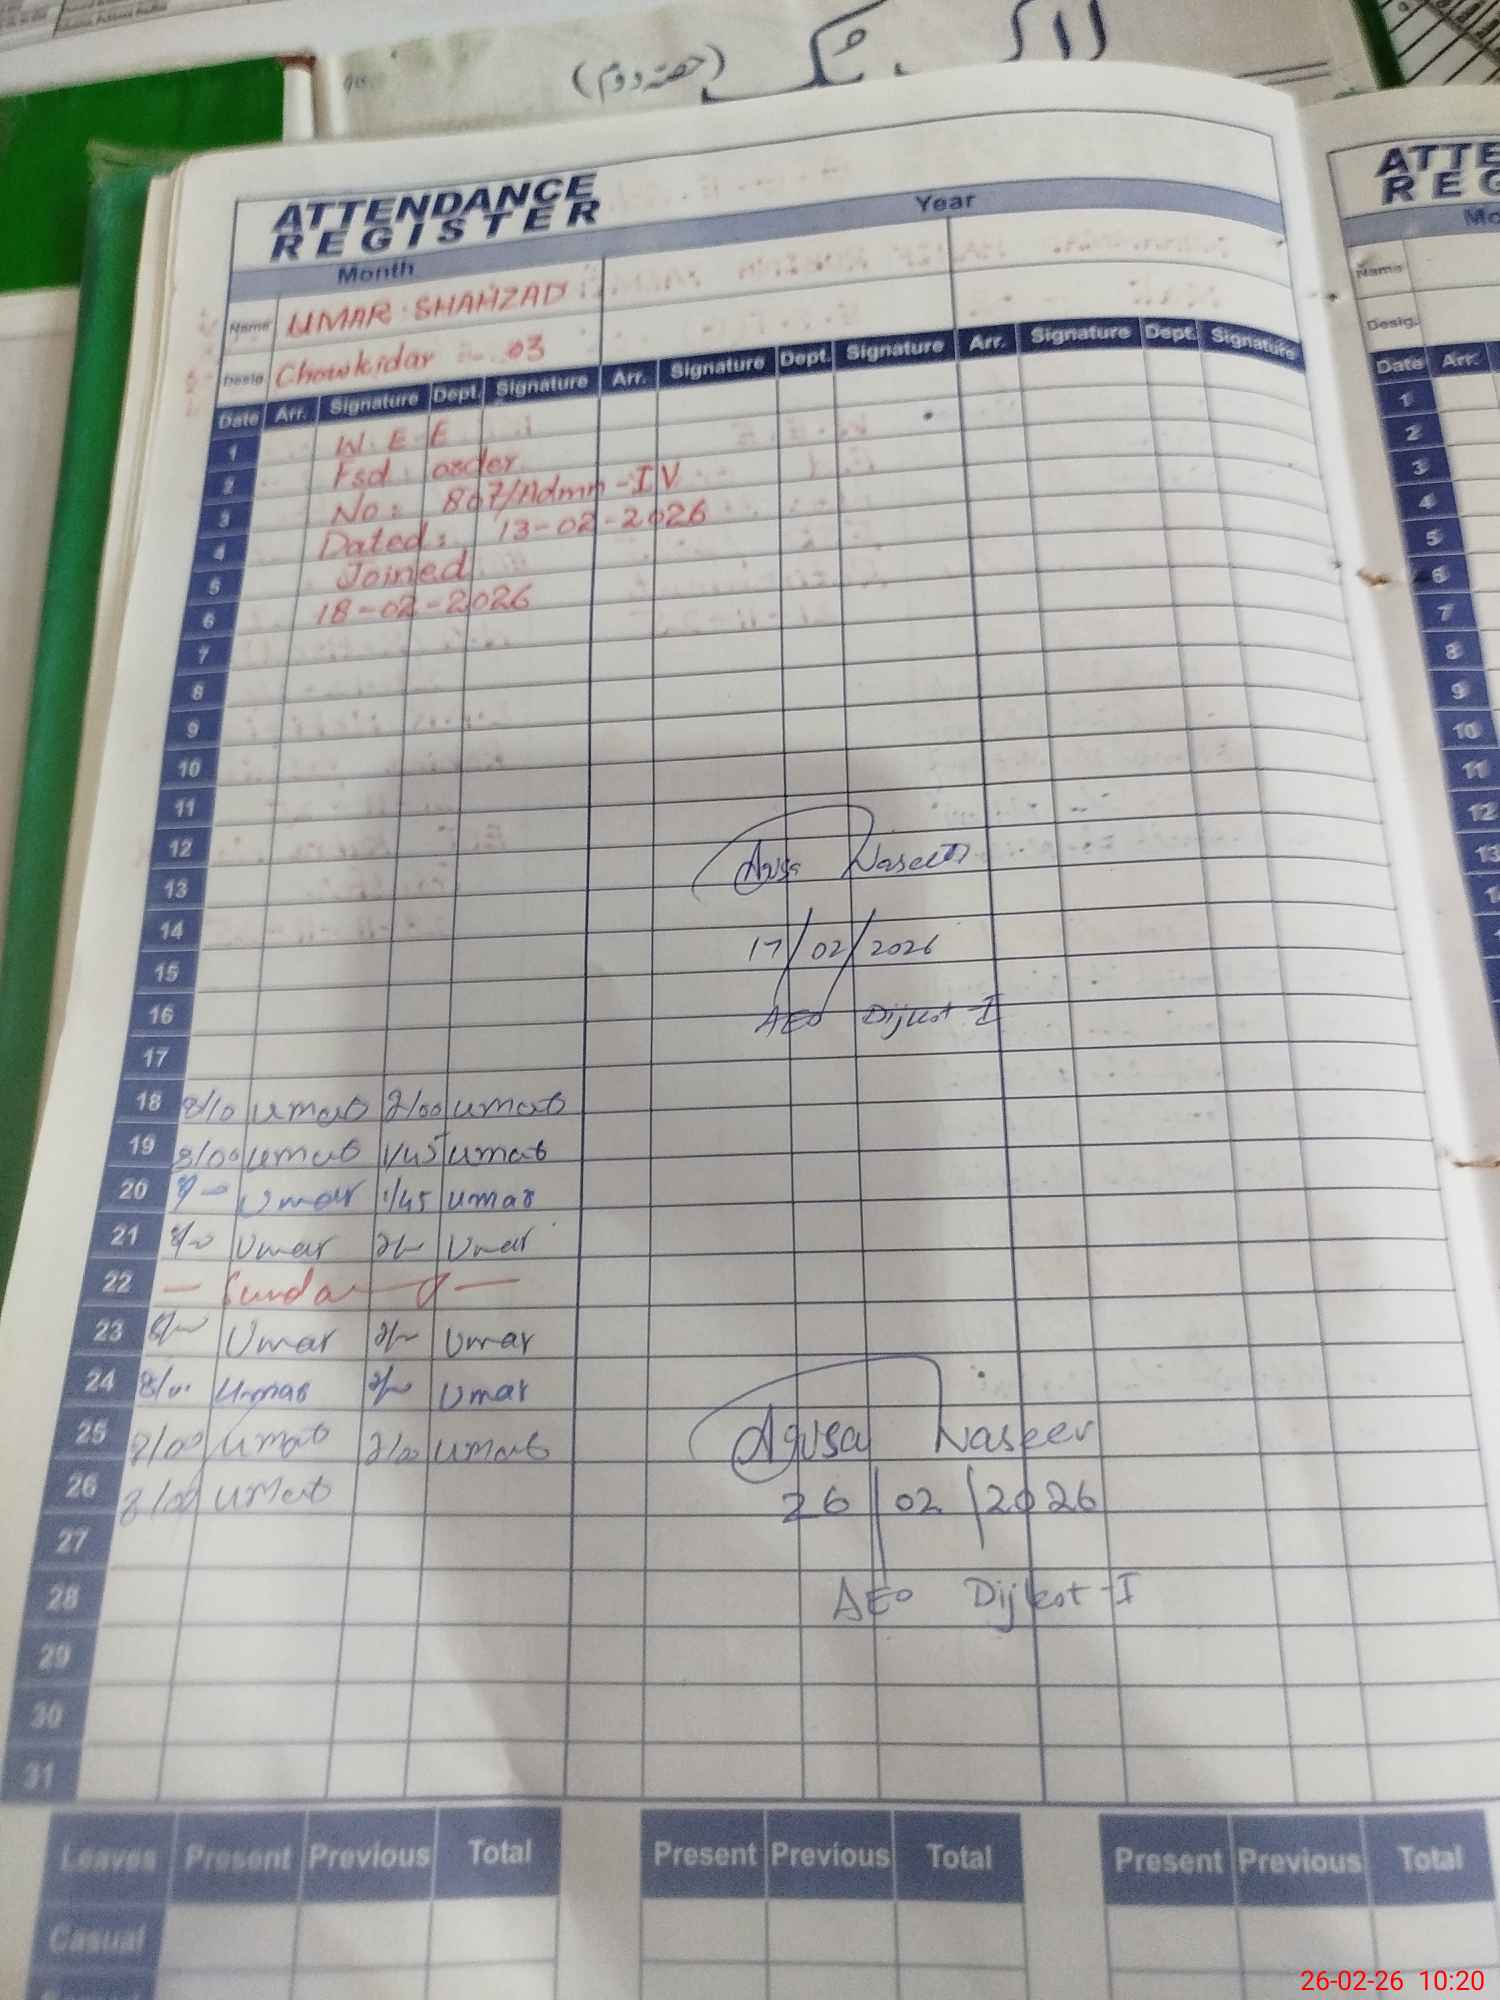 (حصہ دوم)
ATTENDANCE
REGISTER
Month
Year
Name UMAR SHAHZAD
Desig Chowkidar - 03
Date Arr. Signature Dept. Signature Arr. Signature Dept. Signature Arr. Signature Dept. Signature
1 W.E.E
2 Fsd: order
3 No: 807/Admn-IV
4 Dated: 13-02-2026
5 Joined
6 18-02-2026
7
8
9
10
11
12
13 Naseer
14
15 17/02/2026
16 AEO Dijkot-I
17
18 8/10 Umar 2/00 Umar
19 8/00 Umar 1/45 Umar
20 Umar 1/45 Umar
21 Umar Umar
22 — Sunday —
23 Umar Umar
24 Umar Umar
25 8/00 Umar 2/00 Umar Naseer
26 8/00 Umar 26/02/2026
27
28 AEO Dijkot-I
29
30
31
Leaves Present Previous Total Present Previous Total Present Previous Total
Casual
ATTE
REG
Mo
Name
Desig.
Date Arr.
1
2
3
4
5
6
7
8
9
10
11
12
13
26-02-26 10:20